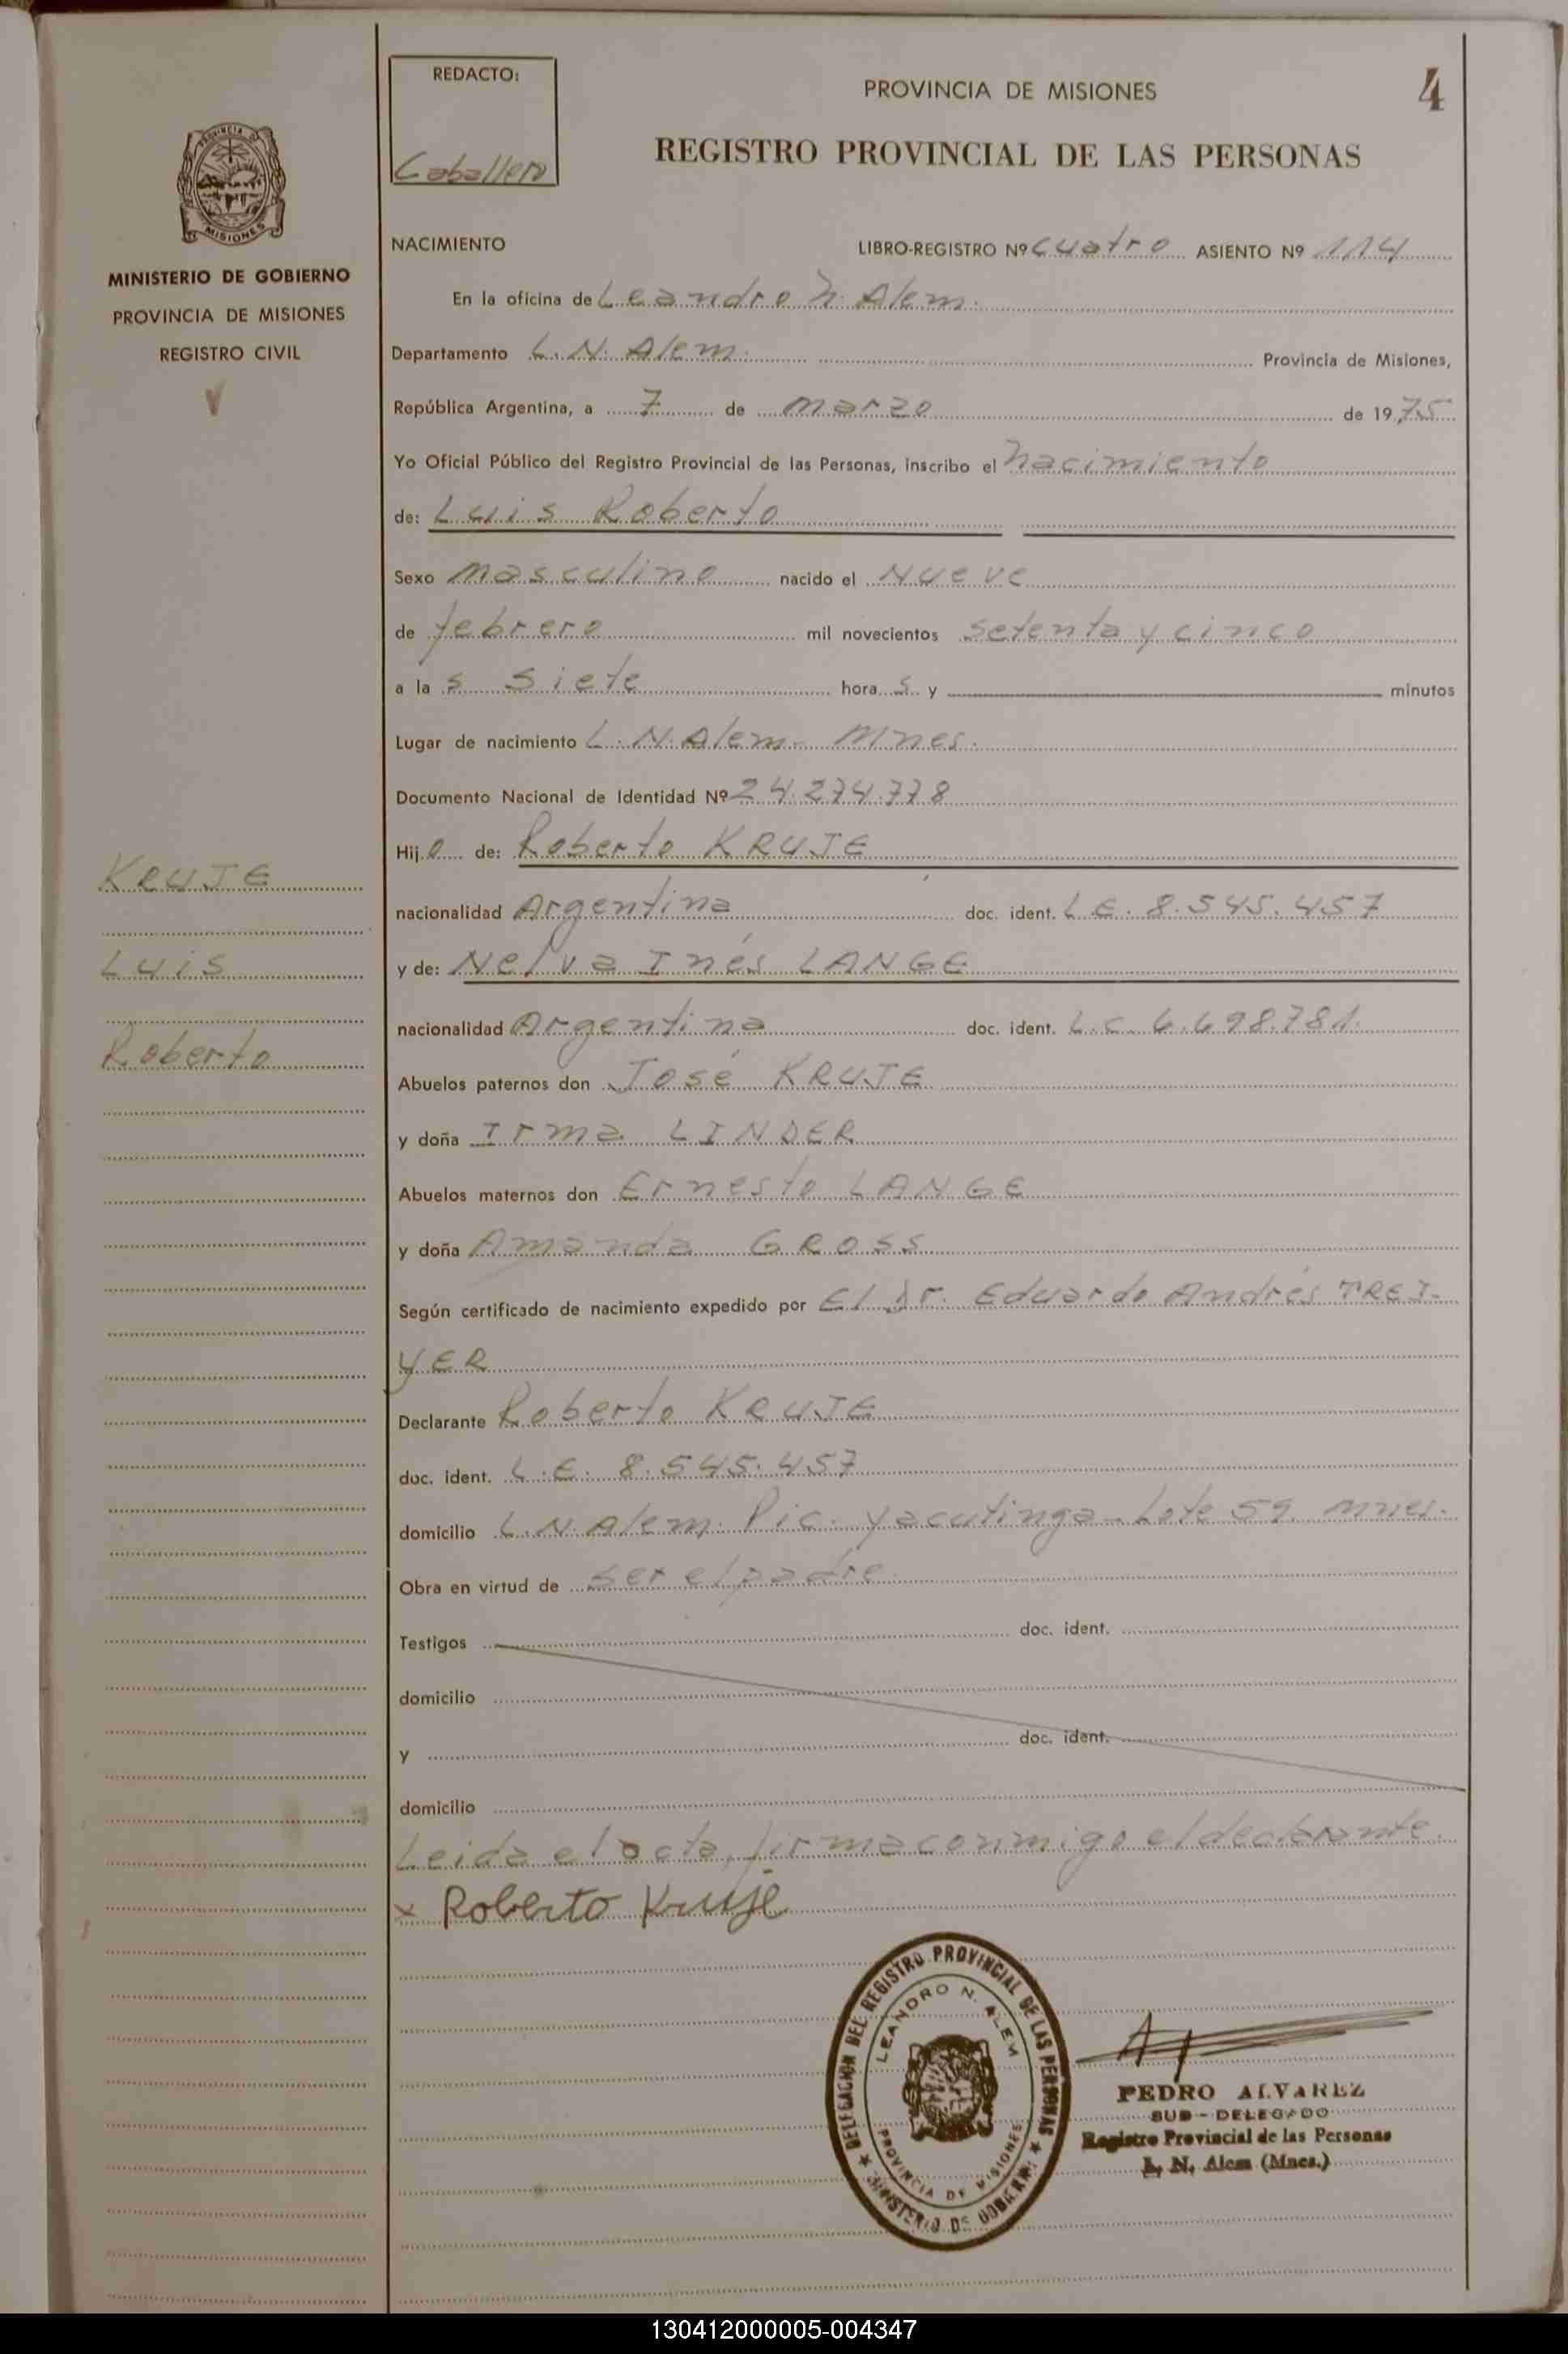 REDACTO:
Caballero
PROVINCIA DE MISIONES
4
REGISTRO PROVINCIAL DE LAS PERSONAS
PROVINCIA DE MISIONES
MINISTERIO DE GOBIERNO
PROVINCIA DE MISIONES
REGISTRO CIVIL
NACIMIENTO LIBRO-REGISTRO Nº Cuatro ASIENTO Nº 114
En la oficina de Leandro N. Alem.
Departamento L. N. Alem. Provincia de Misiones,
República Argentina, a 7 de marzo de 1975
Yo Oficial Público del Registro Provincial de las Personas, inscribo el nacimiento
de: Luis Roberto
Sexo masculino nacido el nueve
de febrero mil novecientos setenta y cinco
a las siete horas y minutos
Lugar de nacimiento L. N. Alem - Mnes.
Documento Nacional de Identidad Nº 24.274.778
Hijo de: Roberto KRUJE
nacionalidad Argentina doc. ident. L.E. 8.545.457
y de: Nelva Inés LANGE
nacionalidad Argentina doc. ident. L.C. 6.698.781.
Abuelos paternos don José KRUJE
y doña Irma LINDER
Abuelos maternos don Ernesto LANGE
y doña Amanda GROSS
Según certificado de nacimiento expedido por El Dr. Eduardo Andrés TREI-
YER
Declarante Roberto KRUJE
doc. ident. L.E. 8.545.457
domicilio L. N. Alem. Pic. Yacutinga - Lote 59. Mnes.
Obra en virtud de ser el padre
Testigos doc. ident.
domicilio
y doc. ident.
domicilio
Leida el acta, firma conmigo el declarante.
x Roberto Kruje
KRUJE
Luis
Roberto
DELEGACION DEL REGISTRO PROVINCIAL DE LAS PERSONAS
LEANDRO N. ALEM
PROVINCIA DE MISIONES
MINISTERIO DE GOBIERNO
PEDRO ALVAREZ
SUB-DELEGADO
Registro Provincial de las Personas
L. N. Alem (Mnes.)
130412000005-004347